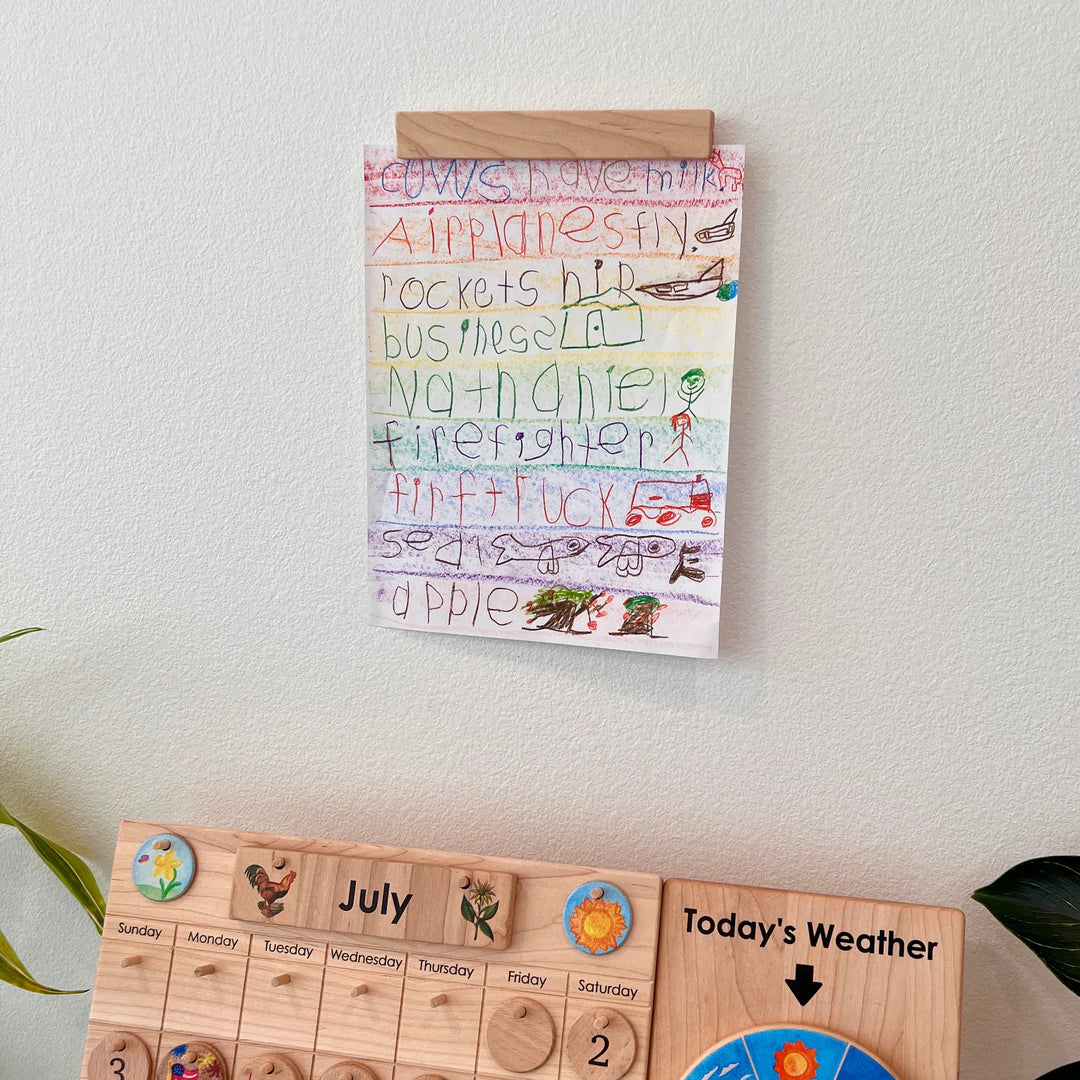 cows have milk.
Airplanes fly.
rockets hip
business
Nathaniel
firefighter
firftruck
seal
apple
July
Sunday Monday Tuesday Wednesday Thursday Friday Saturday
2
3
Today's Weather